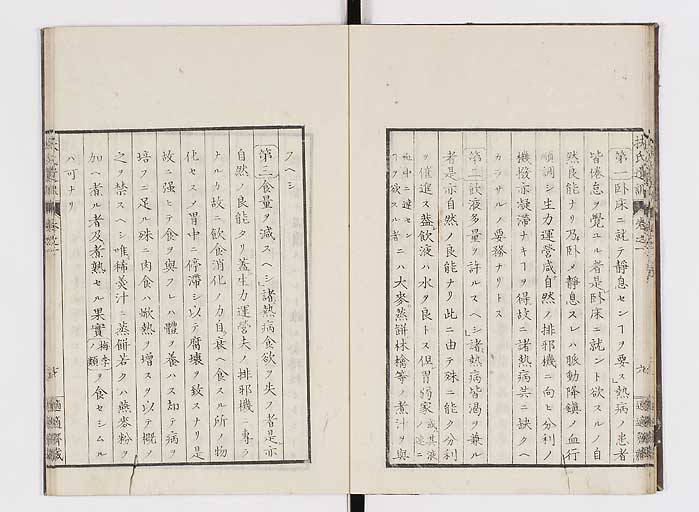 扶氏遺訓 巻之一
第一臥床ニ就テ静息センヿヲ要ス熱病ノ患者
皆倦怠ヲ覚ユル者是臥床ニ就ント欲スルノ自
然良能ナリ乃臥〆静息スレハ脈動降鎮ノ血行
順調シ生力運営咸自然ノ排邪機ニ向ヒ分利ノ
機撥亦凝滞ナキヿヲ得故ニ諸熱病共ニ缺クヘ
カラサルノ要務ナリトス
第二飲液多量ヲ許ルスヘシ諸熱病皆渇ヲ兼ル
者是亦自然ノ良能ナリ此ニ由テ殊ニ能ク分利
ヲ催進ス蓋飲液ハ水ヲ良トス但胃弱家ノ或其液
ヿヲ欲スル者ニハ大麦蒸餅林檎等ノ煮汁ヲ與
フヘシ
第三食量ヲ減スヘシ諸熱病食欲ヲ失フ者是亦
自然ノ良能タリ蓋生力運営夫ノ排邪機ニ専ラ
ナルカ故ニ飲食消化ノ力自衰ヘ食スル所ノ物
化セスノ胃中ニ停滞シ以テ腐壊ヲ致スナリ是
故ニ強ヒテ食ヲ與フレハ體ヲ養ハス却テ病ヲ
培フニ足ル殊ニ肉食ハ焮熱ヲ増スヲ以テ概ノ
之ヲ禁スヘシ唯稀羮汁ニ蒸餅若クハ燕麥粉ヲ
加ヘ者ル者及煮熟セル果實梅李ノ類ヲ食セシムル
ハ可ナリ